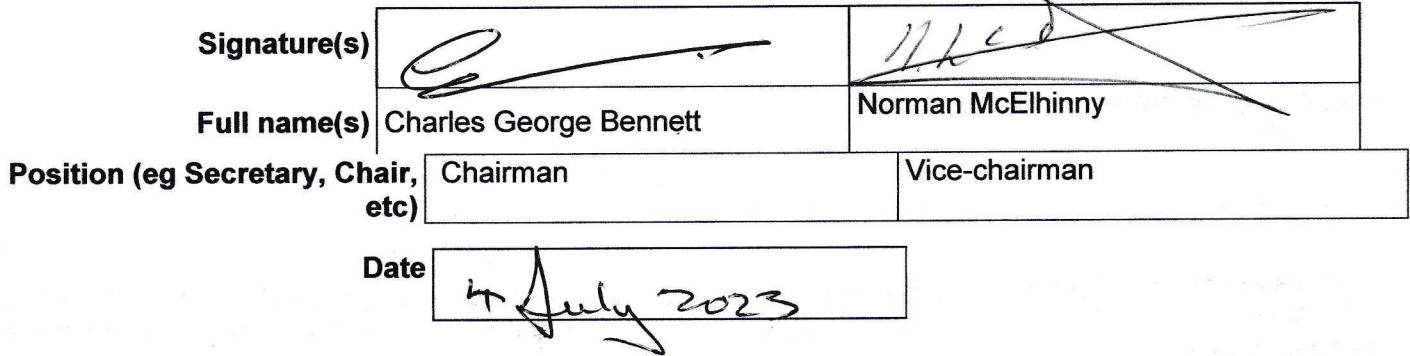 Signature(s)
Full name(s) Charles George Bennett Norman McElhinny
Position (eg Secretary, Chair, Chairman Vice-chairman
etc)
Date 4 July 2023